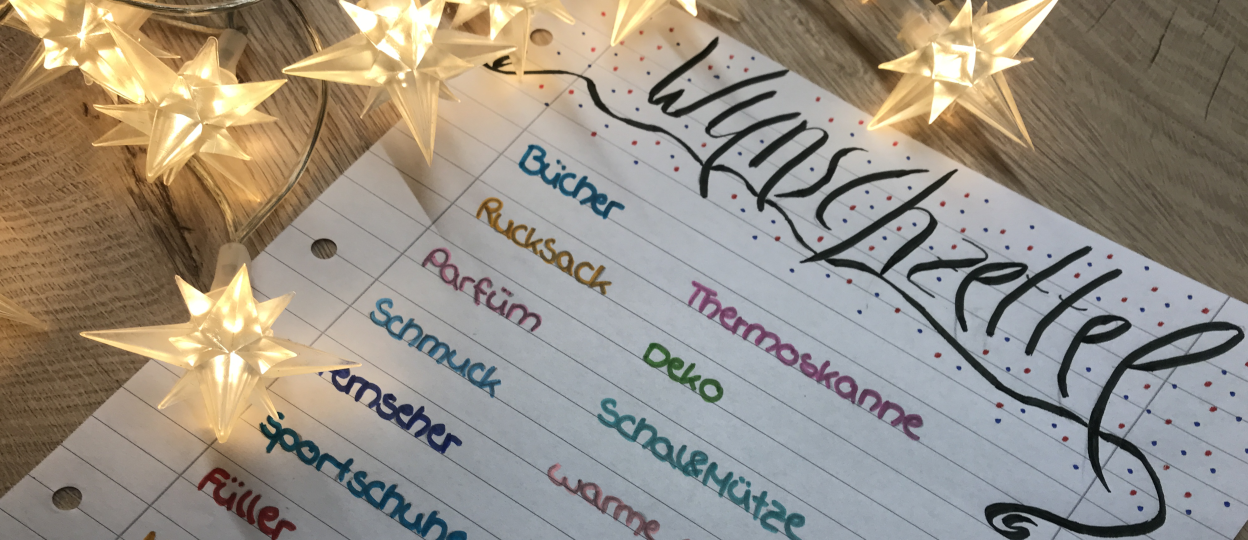 Wunschzettel
Bücher
Rucksack
Parfüm
Schmuck
Fernseher
Sportschuhe
Füller
Thermoskanne
Deko
Schal&Mütze
warme